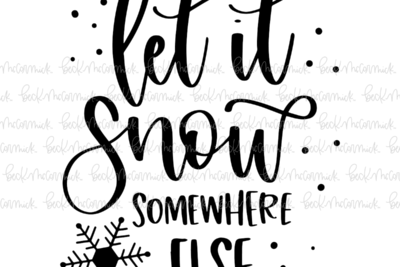 let it
snow
SOMEWHERE
ELSE